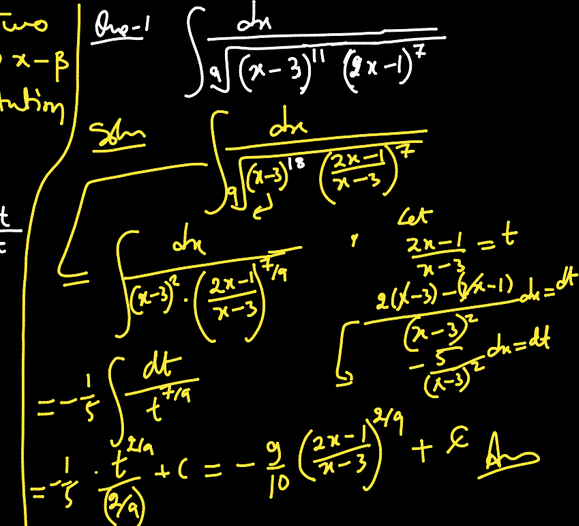 Two
x-β
tution
t
Que-1 ∫ dx / ⁹√((x-3)¹¹ (2x-1)⁷)
Soln ∫ dx / ⁹√((x-3)¹⁸ ((2x-1)/(x-3))⁷)
∫ dx / ((x-3)² · ((2x-1)/(x-3))^(7/9)) , Let (2x-1)/(x-3) = t
(2(x-3) - (2x-1))/(x-3)² dx = dt
-5/(x-3)² dx = dt
= -1/5 ∫ dt / t^(7/9)
= -1/5 · t^(2/9)/(2/9) + C = -9/10 ((2x-1)/(x-3))^(2/9) + C Ans